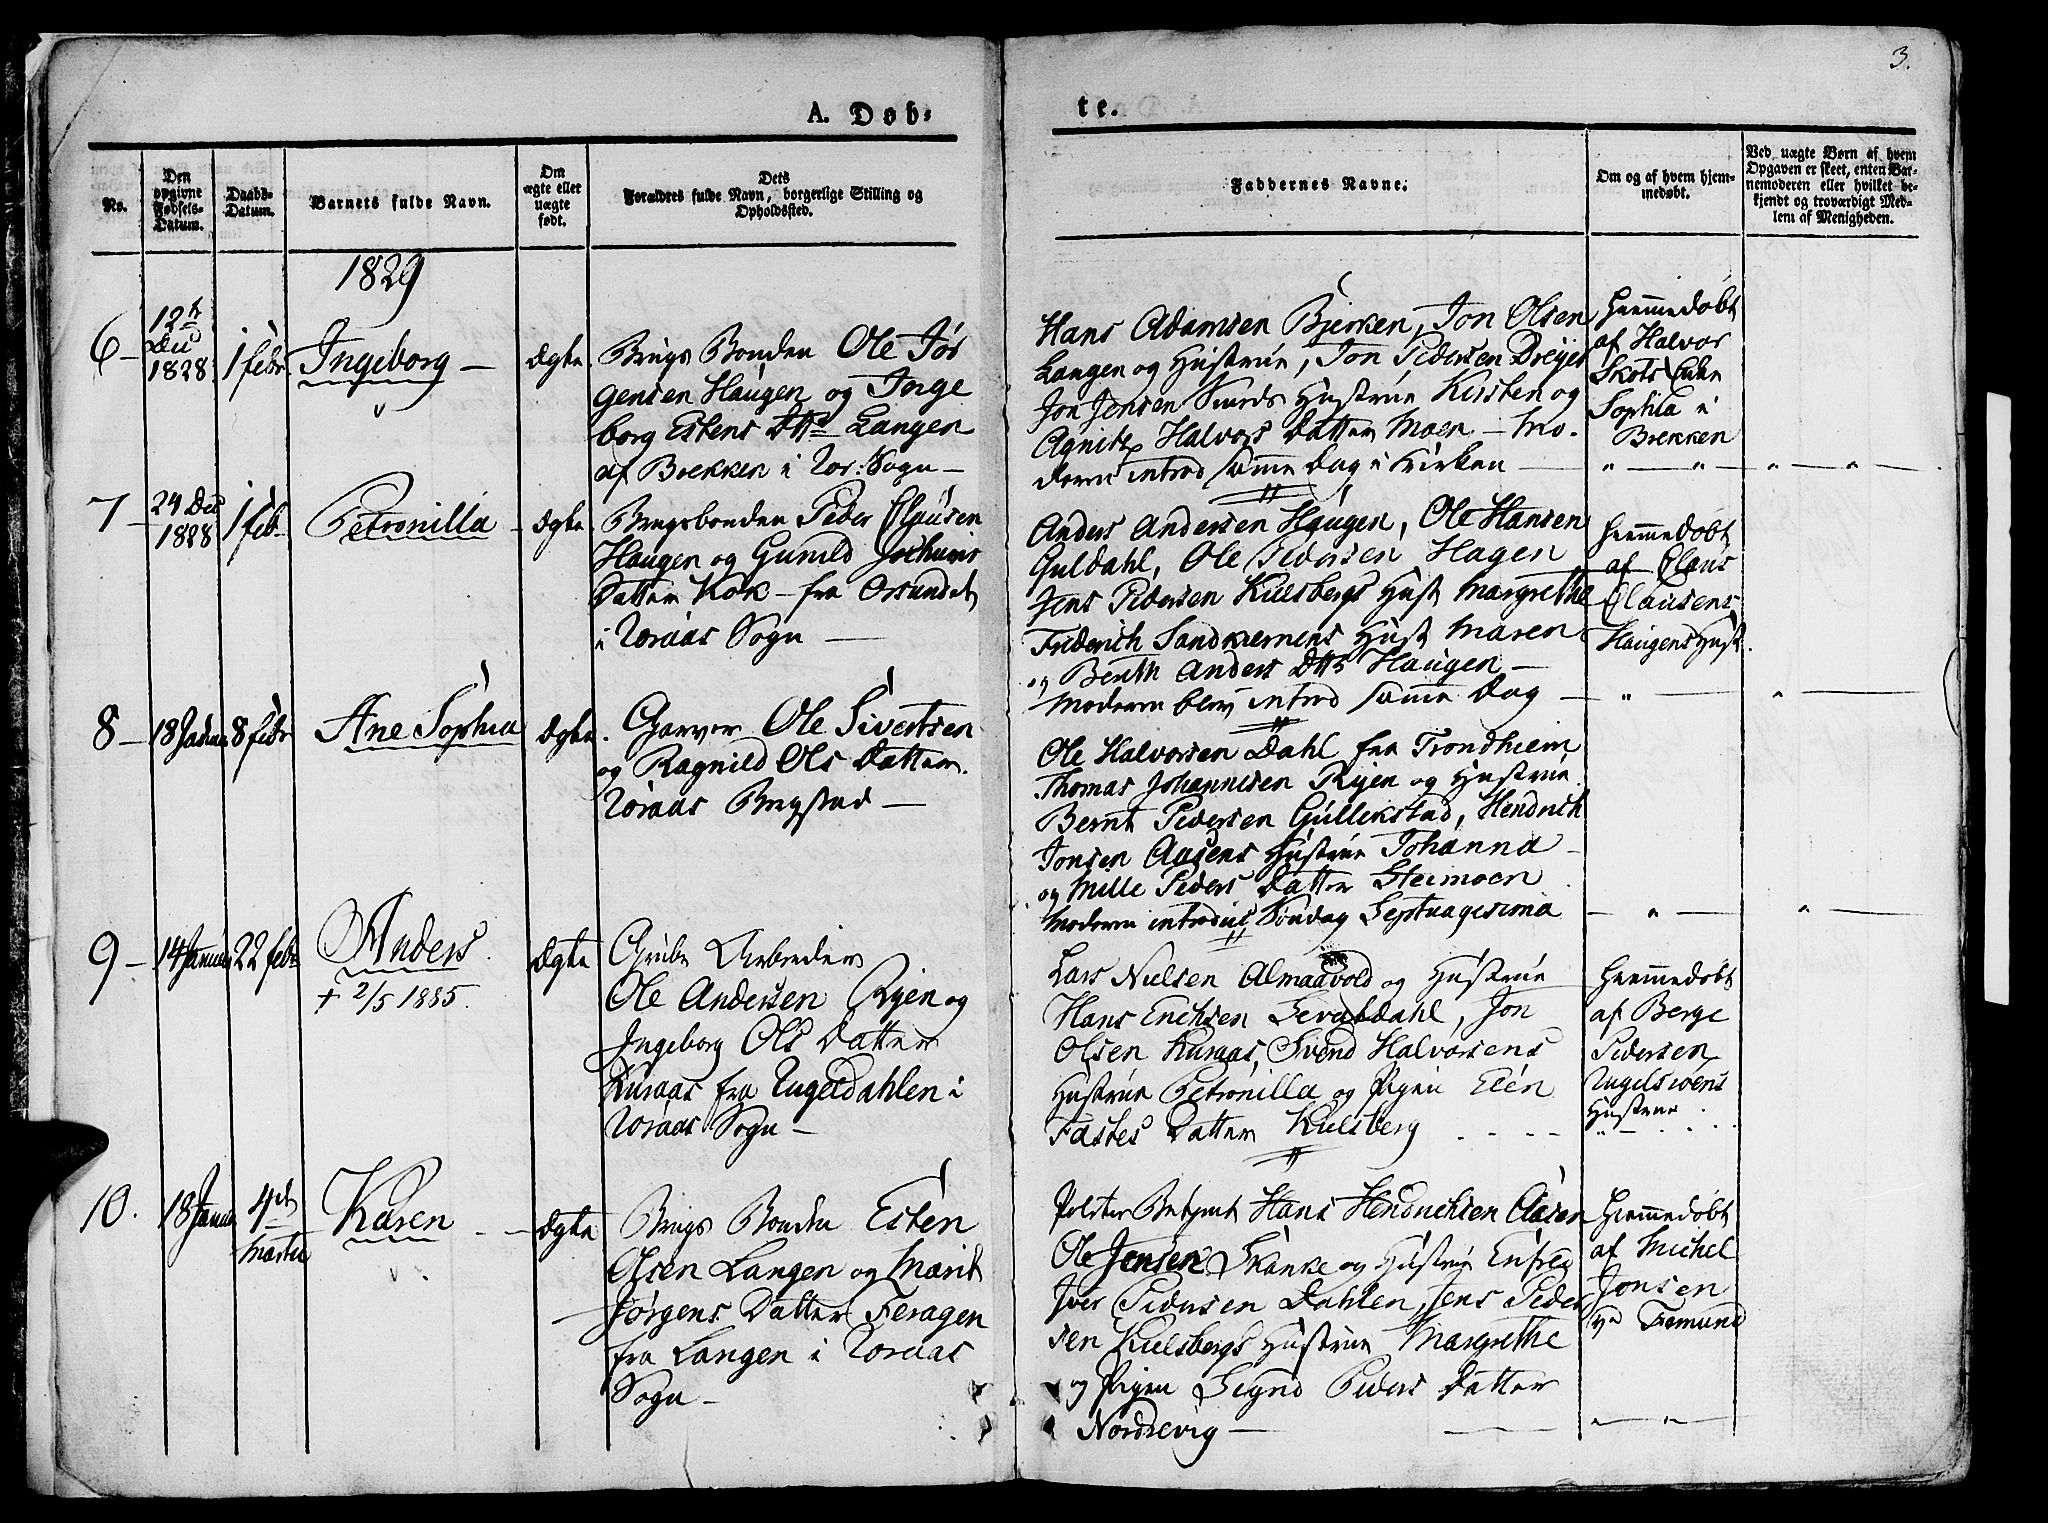 3.
A. Døb-
te.
No.
Den opgivne Fødsels-Datum.
Daabs-Datum.
Barnets fulde Navn.
Om ægte eller uægte født.
Dets Forældres fulde Navn, borgerlige Stilling og Opholdssted.
Faddernes Navne.
Om og af hvem hjem-
medøbt.
Ved uægte Børn af hvem
Opgaven er skeet, enten Bar-
nemoderen eller hvilket be-
kjendt og troværdigt Med-
lem af Menigheden.
1829
6 – 12te Dec 1828 1 febr Ingeborg – Ægte
Brugs Bonden Ole Jør
gensen Haugen og Inge
borg Estens Dtr Langen
af Brekken i Ror: Sogn –
Hans Adamsen Bjerken, Jon Olsen
Langen og Hustrue, Jon Pedersen Dreyer
Jon Jensen Hustrue Kirsten og
Agnite Halvors Datter Moen – Mo-
deren introd samme Dag i Kirken –
Hjemmedøbt
af Halvor
Skots Enke
Sophia i
Brekken
7 – 24 Dec 1828 1 feb Petronilla – Ægte
Brugsbonden Peder Clausen
Haugen og Gunild Jochums
Datter Kok – fra Orsundet
i Roraas Sogn –
Anders Andersen Haugen, Ole Hansen
Guldahl, Ole Pedersen Hagen
Jens Pedersen Kulsbergs Hust Margrethe
Friderich Sandkiernens Hust Maren
og Berith Anders Dtr Haugen –
Moderen blev introd samme Dag –
Hjemmedøbt
af Claus
Clausens
Haugens Hust.
8 – 18 Januar 8 febr Ane Sophia Ægte.
Garver Ole Sivertsen
og Ragnild Ols Datter.
Roraas Bergstad –
Ole Halvorsen Dahl fra Trondhiem
Thomas Johannesen Ryen og Hustrue
Bernt Pedersen Gullikstad, Hendrich
Jonsen Aasens Hustrue Johanna –
og Mille Peders Datter Steimoen
Moderen introduc Søndag Septuagesima
9 – 14 Januar 22 febr Anders. Ægte
+ 2/5 1885.
Grube Arbeider
Ole Andersen Ryen og
Ingeborg Ols Datter
Kuraas fra Rugeldahlen i
Roraas Sogn –
Lars Nielsen Almaavold og Hustrue
Hans Erichsen Sevaldahl, Jon
Olsen Kuraas, Svend Halvorsens
Hustrue Petronilla og Pigen Elen
Fastes Datter Kulsberg
Hjemmedøbt
af Berge
Pedersen
Rugelsøens
Hustrue
10. 18 Januar 4de Martii Karen – Ægte
Brugs Bonden Esten
Olsen Langen og Marit
Jørgens Datter Feragen
fra Langen i Roraas
Sogn –
Politie Betjent Hans Hendrichsen Aasen
Ole Jensen Skanke og Hustrue
Iver Pedersen Dahlen, Jens Peder
sen Kulsbergs Hustrue Margrethe
og Pigen Signe Peders Datter
Nordrevig –
Hjemmedøbt
af Michel
Jonsen
Femund